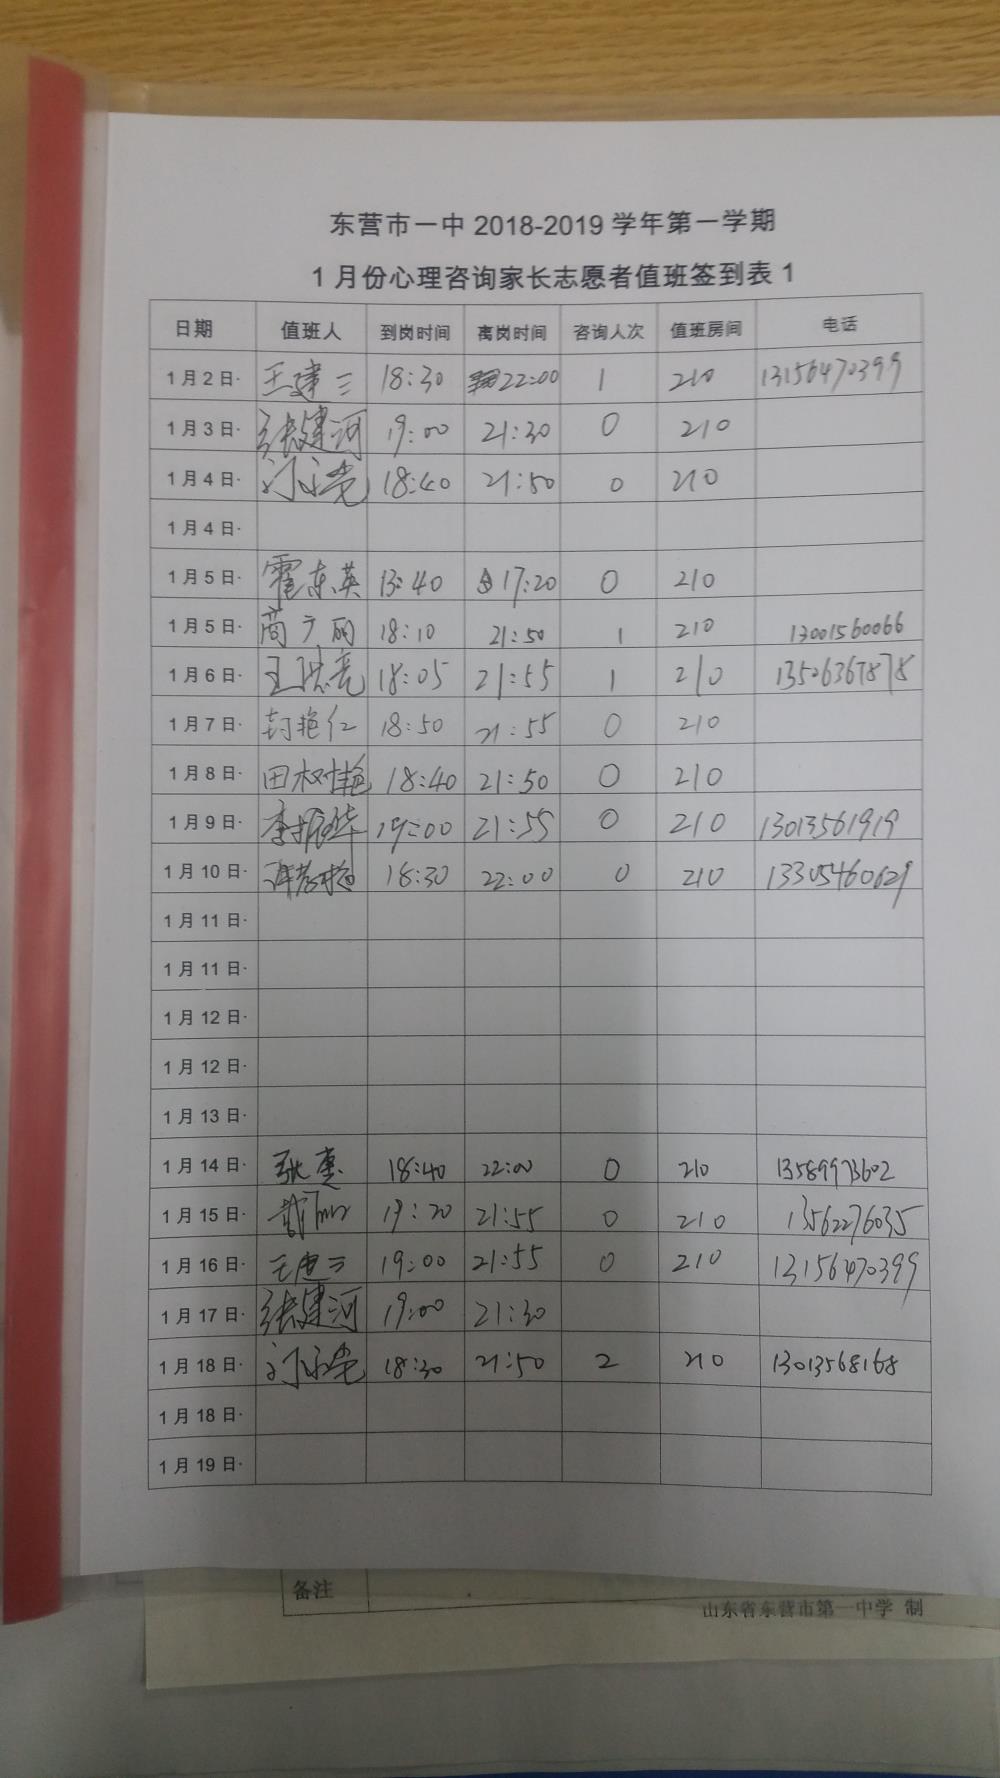 东营市一中 2018-2019 学年第一学期
1 月份心理咨询家长志愿者值班签到表 1
日期 值班人 到岗时间 离岗时间 咨询人次 值班房间 电话
1 月 2 日· 王建三 18:30 22:00 1 210 13156470399
1 月 3 日· 张建河 19:00 21:30 0 210
1 月 4 日· 18:40 21:50 0 210
1 月 4 日·
1 月 5 日· 霍东英 13:40 17:20 0 210
1 月 5 日· 商广丽 18:10 21:50 1 210 13001560066
1 月 6 日· 王洪亮 18:05 21:55 1 210
1 月 7 日· 封艳仁 18:50 21:55 0 210
1 月 8 日· 田树艳 18:40 21:50 0 210
1 月 9 日· 李振华 19:00 21:55 0 210 13013561919
1 月 10 日· 18:30 22:00 0 210 13305460629
1 月 11 日·
1 月 11 日·
1 月 12 日·
1 月 12 日·
1 月 13 日·
1 月 14 日· 18:40 22:00 0 210 13589973602
1 月 15 日· 19:20 21:55 0 210 13562276035
1 月 16 日· 王建三 19:00 21:55 0 210 13156470399
1 月 17 日· 张建河 19:00 21:30
1 月 18 日· 18:30 21:50 2 210 13013568168
1 月 18 日·
1 月 19 日·
备注
山东省东营市第一中学 制